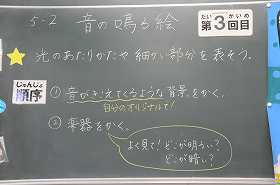 5-2 音の鳴る絵
だい かいめ
第3回目
光のあたりかたや細かい部分を表そう。
じゅんじょ
順序
① 音がきこえてくるような背景をかく。
自分のオリジナルで!
② 楽器をかく。
よく見て!どこが明るい?
どこが暗い?